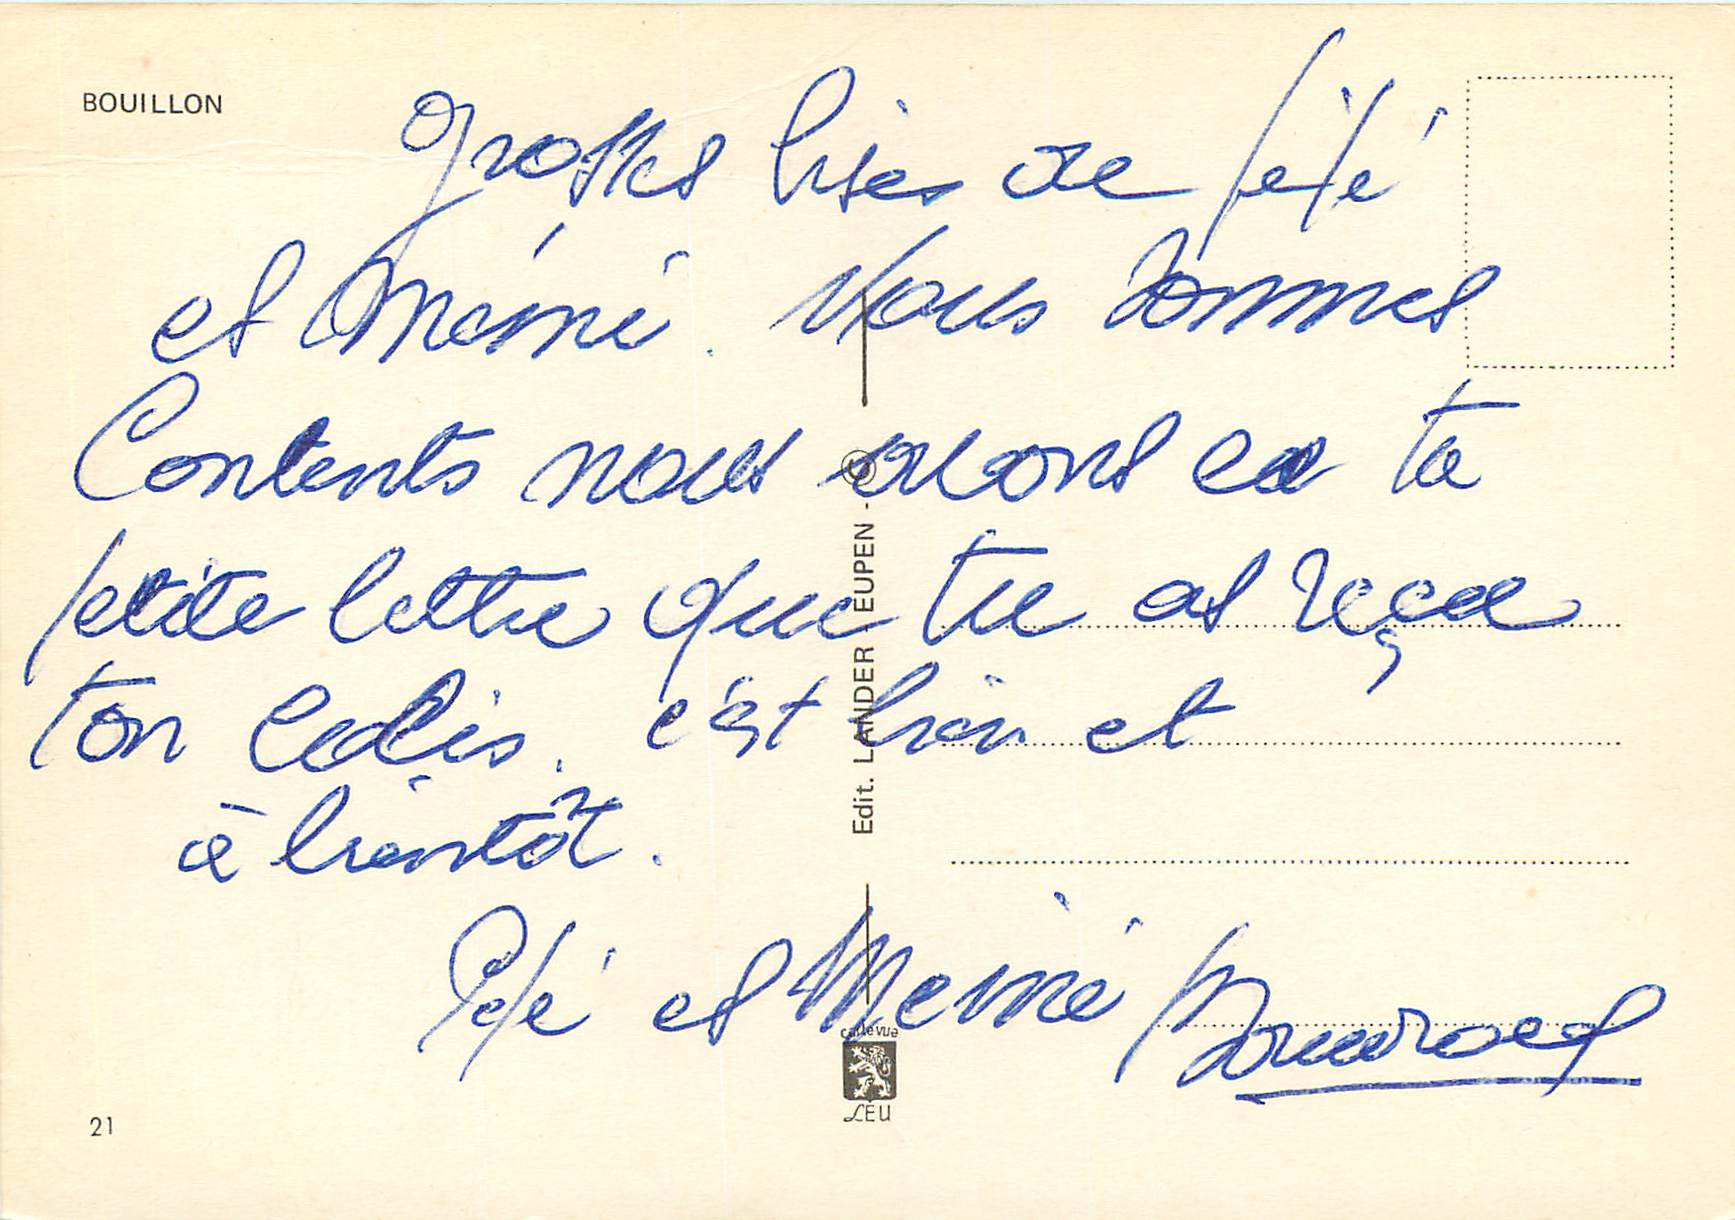 BOUILLON
grosses bises de pépé
et Mémé. Nous sommes
Contents nous avons eu ta
petite lettre que tu as reçu
ton colis. c'est bien et
à bientôt.
Pépé et Mémé
Edit. LANDER EUPEN - ©
carte vue
LEU
21